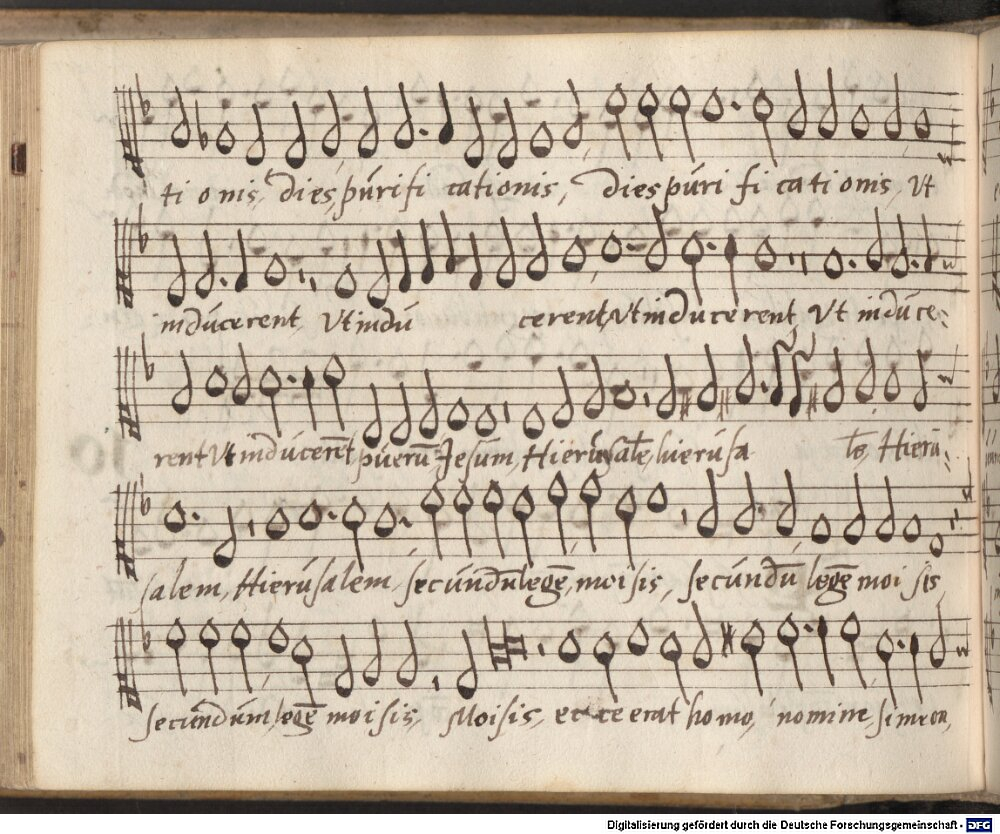 ti onis, dies purifi cationis, dies puri fi cationis, Ut
inducerent, Ut indu cerent, Ut inducerent, Ut induce:
rent Ut inducerēt puerū Jesum, Hierusalē, hierusa lē, Hieru:
salem, Hierusalem, secundū legē, moisis, secundū legē moi sis,
secundum legē moisis, Moisis, et ecce erat homo, nomine, simeon,
Digitalisierung gefördert durch die Deutsche Forschungsgemeinschaft - DFG